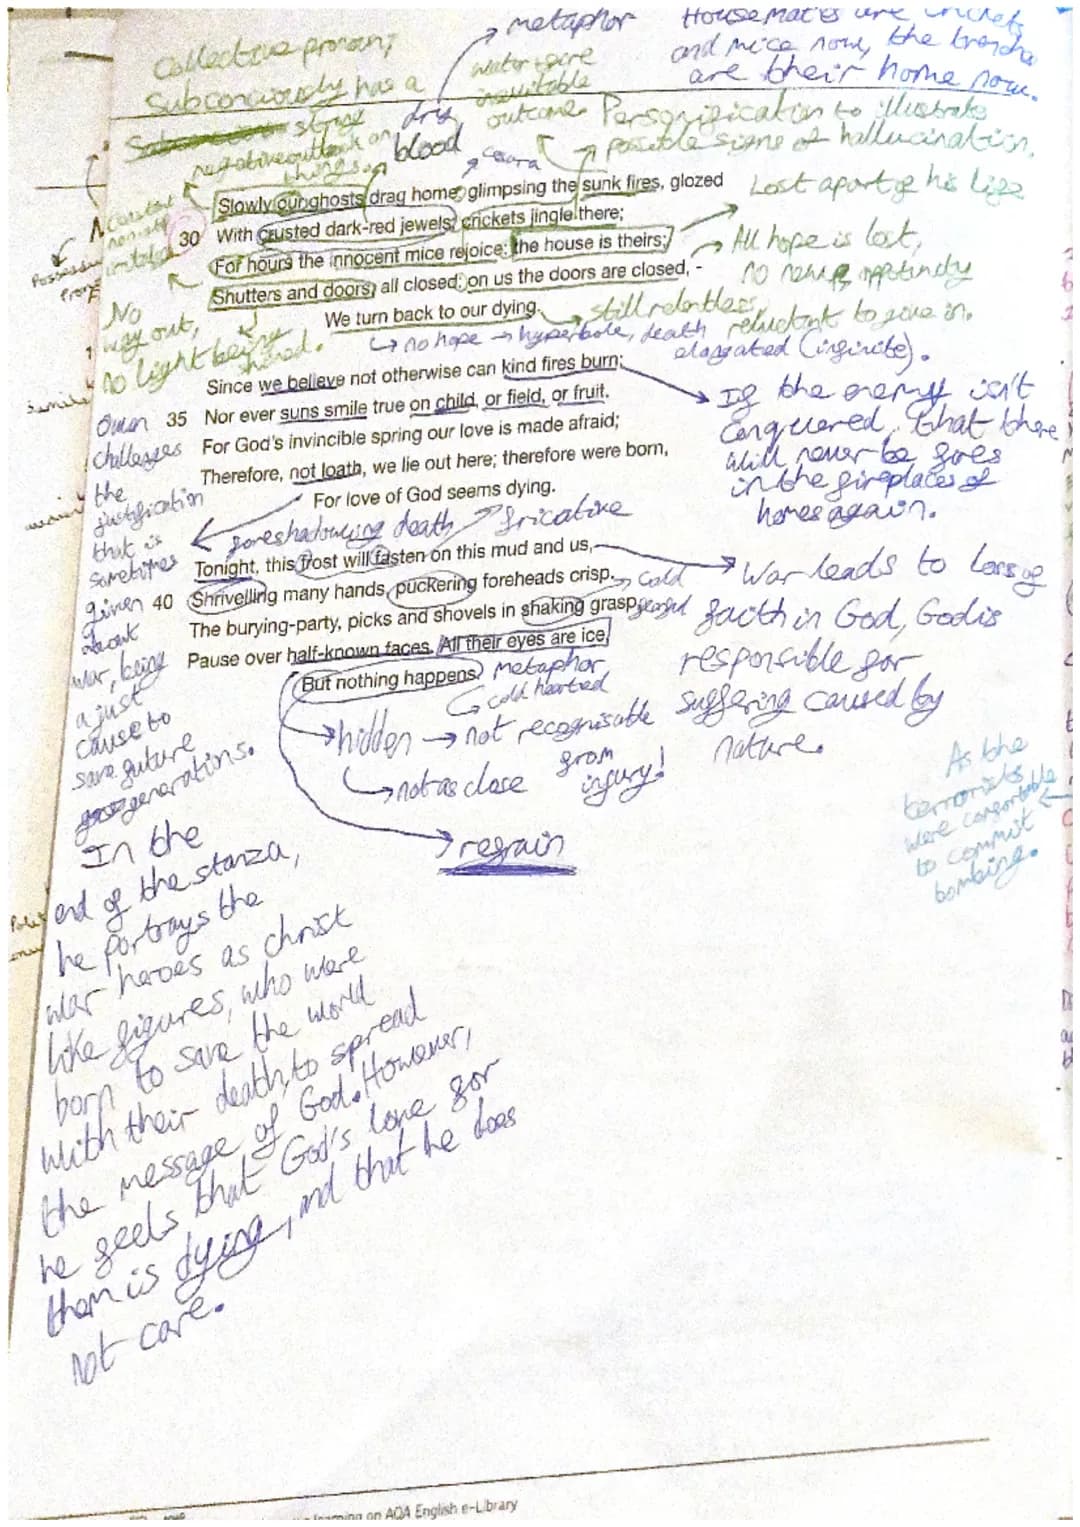 metaphor
Housemates are crickets
and mice now, the trenche
are their home now.
Collective pronoun;
Subconciously has a
strong
negative outlook on
things.
water + fire
inevitable
outcome.
dry
blood
Personification to illustrate
possible signs of hallucination.
Slowly our ghosts drag home: glimpsing the sunk fires, glozed
Lost apart of his life
30 With crusted dark-red jewels; crickets jingle there;
For hours the innocent mice rejoice: the house is theirs;
All hope is lost,
Shutters and doors, all closed: on us the doors are closed, -
We turn back to our dying.
still relentless,
reluctant to give in.
No
way out,
no light being
shined.
no hope → hyperbole, death
elongated (infinite).
Since we believe not otherwise can kind fires burn;
35 Nor ever suns smile true on child, or field, or fruit.
For God's invincible spring our love is made afraid;
Therefore, not loath, we lie out here; therefore were born,
For love of God seems dying.
If the enemy isn't
conquered, that there
will never be fires
in the fireplaces of
homes again.
Owen
challenges
the
justification
that is
sometimes
given
about
war, being
a just
cause to
save future
generations.
foreshadowing death
fricative
Tonight, this frost will fasten on this mud and us,
40 Shrivelling many hands, puckering foreheads crisp.
The burying-party, picks and shovels in shaking grasp,
Pause over half-known faces. All their eyes are ice,
But nothing happens.
cold
fearful
War leads to loss of
faith in God, God is
responsible for
suffering caused by
nature.
metaphor
cold hearted
hidden → not recognisable
from
injury!
not as close
refrain
As the
terrorists
were comfortable
to commit
bombing.
In the
end of the stanza,
he portrays the
war heroes as christ
like figures, who were
born to save the world
with their death, to spread
the message of God. However,
he feels that God's love for
them is dying, and that he does
not care.
learning on AQA English e-Library